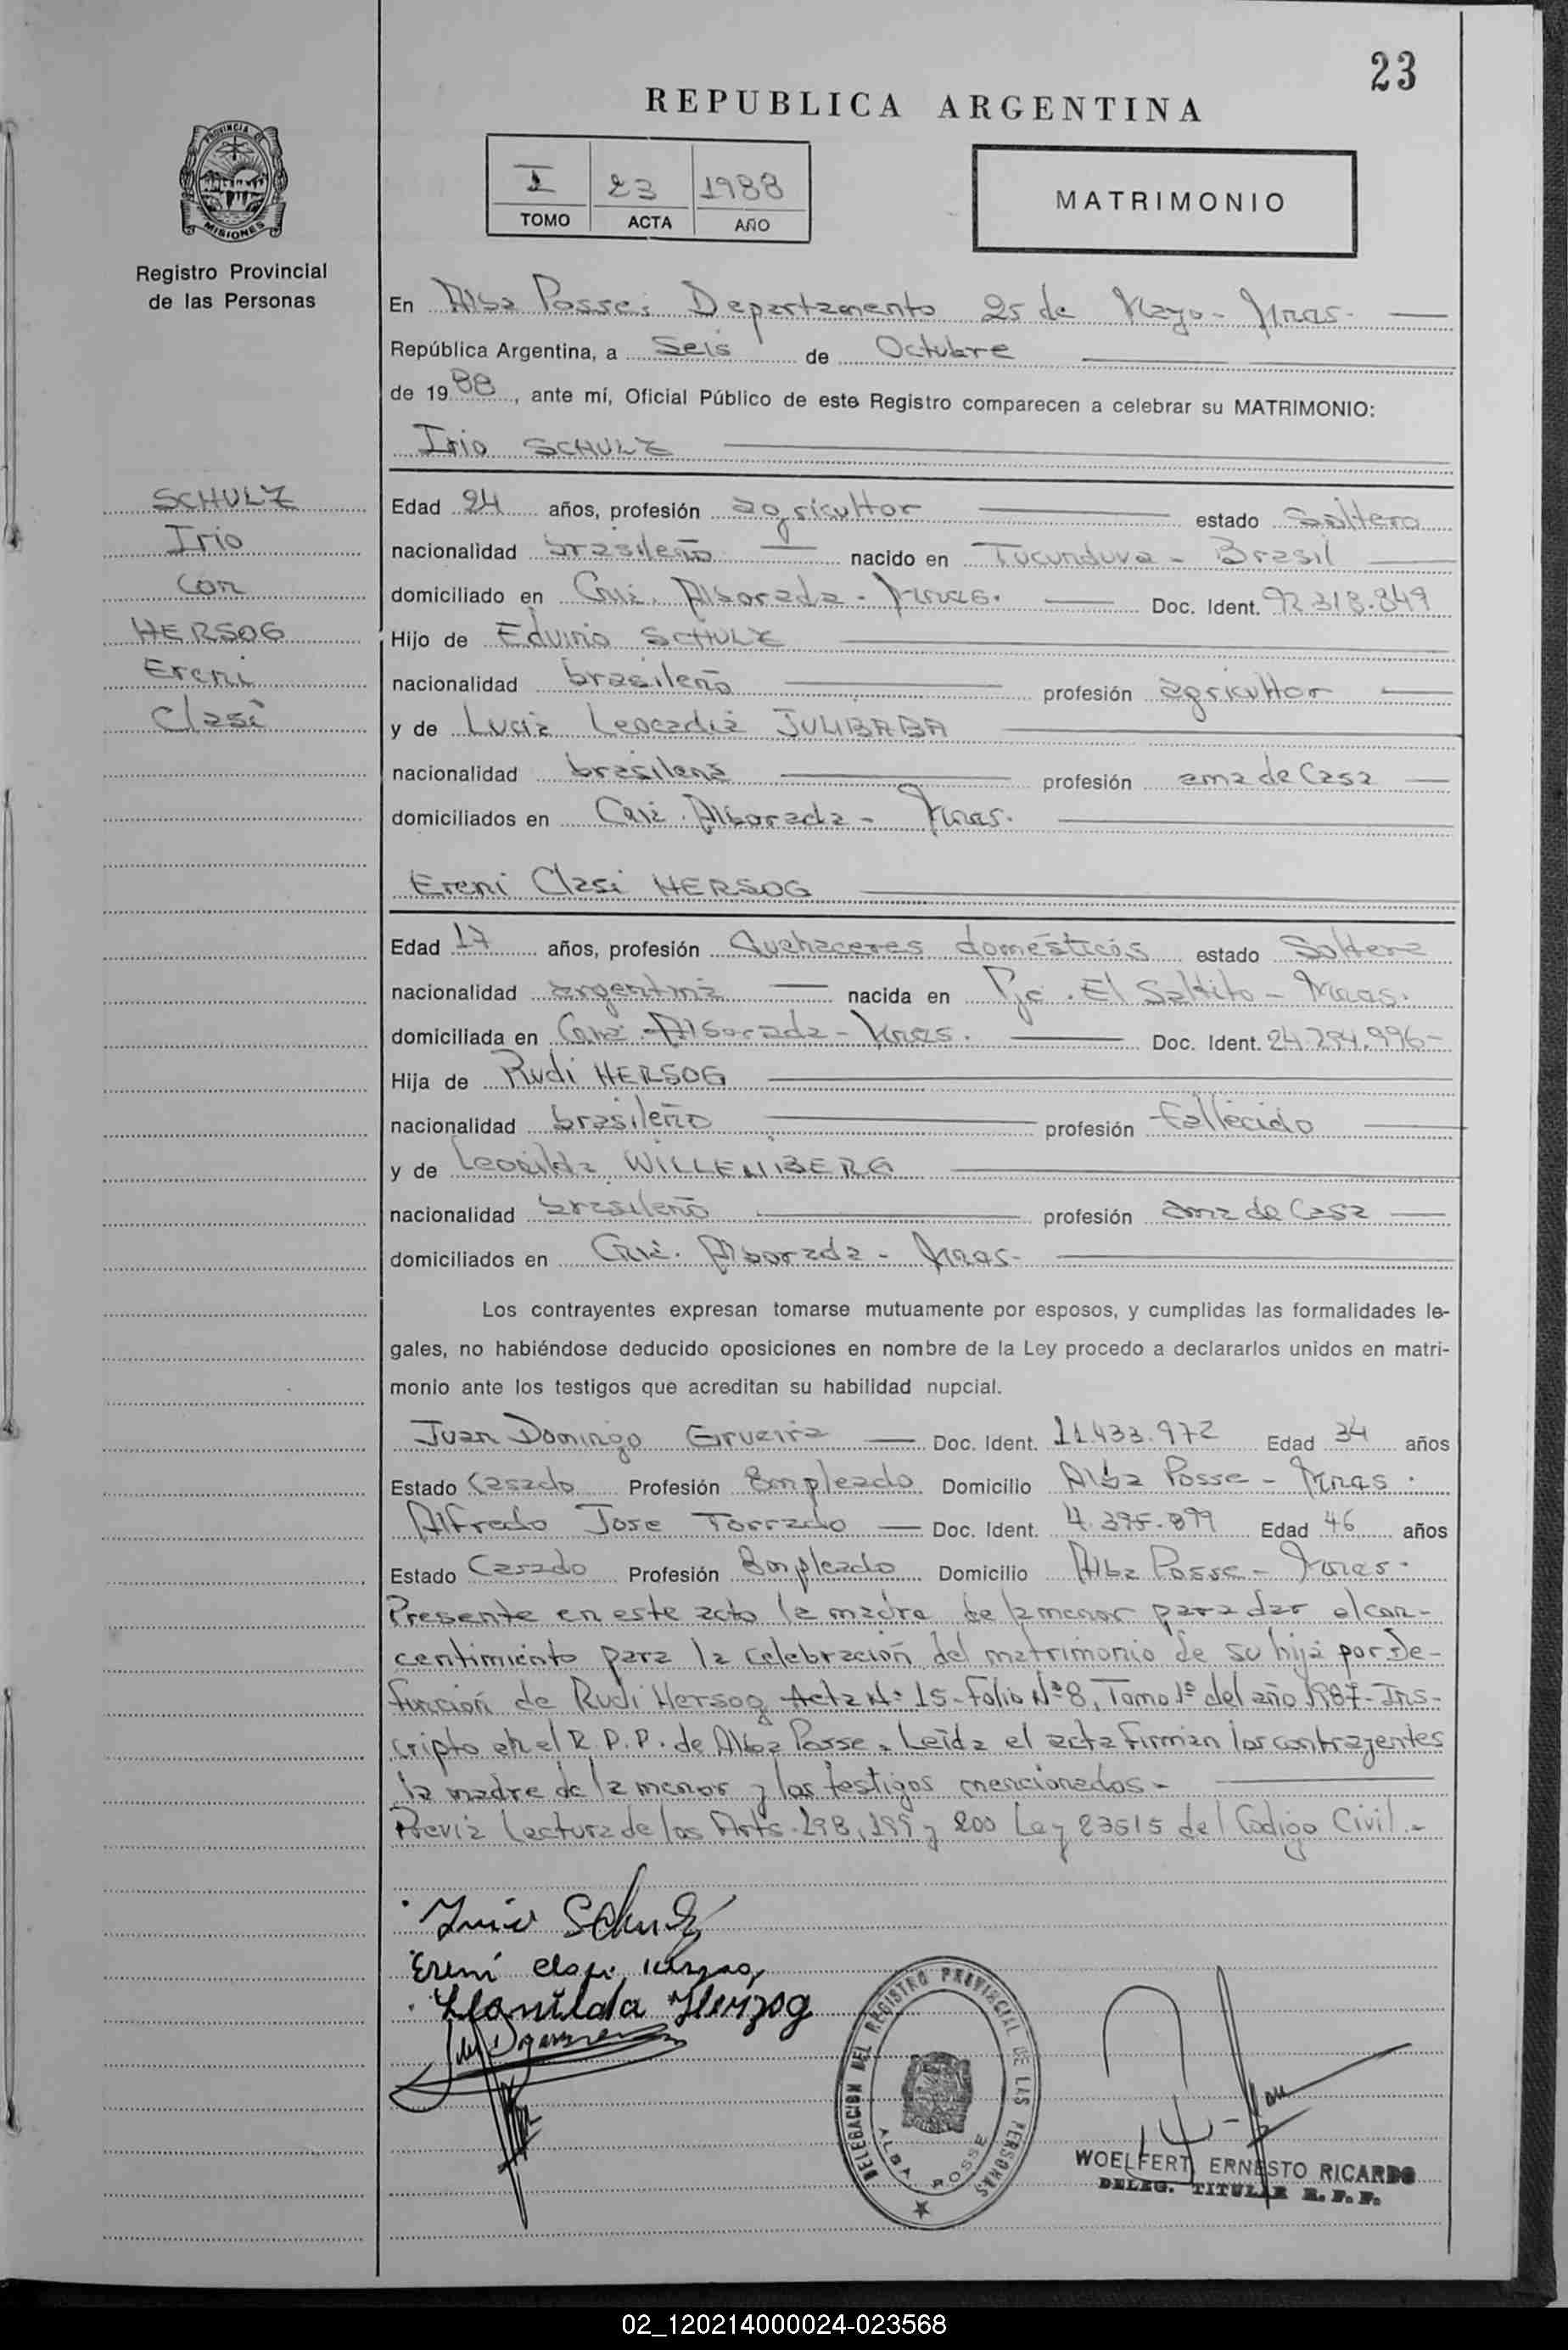 23
REPUBLICA ARGENTINA
I 23 1988
TOMO ACTA AÑO
MATRIMONIO
PROVINCIA DE
MISIONES
Registro Provincial
de las Personas
En Alba Posse; Departamento 25 de Mayo - Mnes.
República Argentina, a Seis de Octubre
de 1988, ante mí, Oficial Público de este Registro comparecen a celebrar su MATRIMONIO:
Irio SCHULZ
SCHULZ
Irio
con
HERSOG
Ereni
Clasi
Edad 24 años, profesión agricultor estado Soltero
nacionalidad brasileño nacido en Tucunduva - Brasil
domiciliado en Alborada - Mnes. Doc. Ident. 92.318.849
Hijo de Eduino SCHULZ
nacionalidad brasileño profesión agricultor
y de Lucia Leocadia JULIBABA
nacionalidad brasilena profesión ama de Casa
domiciliados en Alborada - Mnes.
Ereni Clasi HERSOG
Edad 17 años, profesión Quehaceres domésticos estado Soltera
nacionalidad argentina nacida en Pje. El Saltito - Mnes.
domiciliada en Alborada - Mnes. Doc. Ident. 24.294.996-
Hija de Rudi HERSOG
nacionalidad brasileño profesión fallecido
y de Leonilda WILLEMBERG
nacionalidad brasileño profesión ama de Casa
domiciliados en Alborada - Mnes-
Los contrayentes expresan tomarse mutuamente por esposos, y cumplidas las formalidades le-
gales, no habiéndose deducido oposiciones en nombre de la Ley procedo a declararlos unidos en matri-
monio ante los testigos que acreditan su habilidad nupcial.
Juan Domingo Doc. Ident. 11.433.972 Edad 34 años
Estado Casado Profesión Empleado Domicilio Alba Posse - Mnes.
Alfredo Jose Torrado Doc. Ident. 4.395.899 Edad 46 años
Estado Casado Profesión Empleado Domicilio Alba Posse - Mnes.
Presente en este acto la madre de la menor para dar el con-
centimiento para la celebración del matrimonio de su hija por De-
función de Rudi Hersog Acta Nº 15 - Folio Nº 8, Tomo 1º del año 1987 - Ins-
cripto en el R.P.P. de Alba Posse. Leída el acta firman los contrayentes
la madre de la menor y los testigos mencionados -
Previa Lectura de los Arts. 198, 199 y 200 Ley 23515 del Codigo Civil.-
Irio Schulz
Ereni clasi
Leonilda Herzog
DELEGACION DEL REGISTRO PROVINCIAL DE LAS PERSONAS
ALBA POSSE
WOELFERT ERNESTO RICARDO
DELEG. TITULAR R. P. P.
02_120214000024-023568